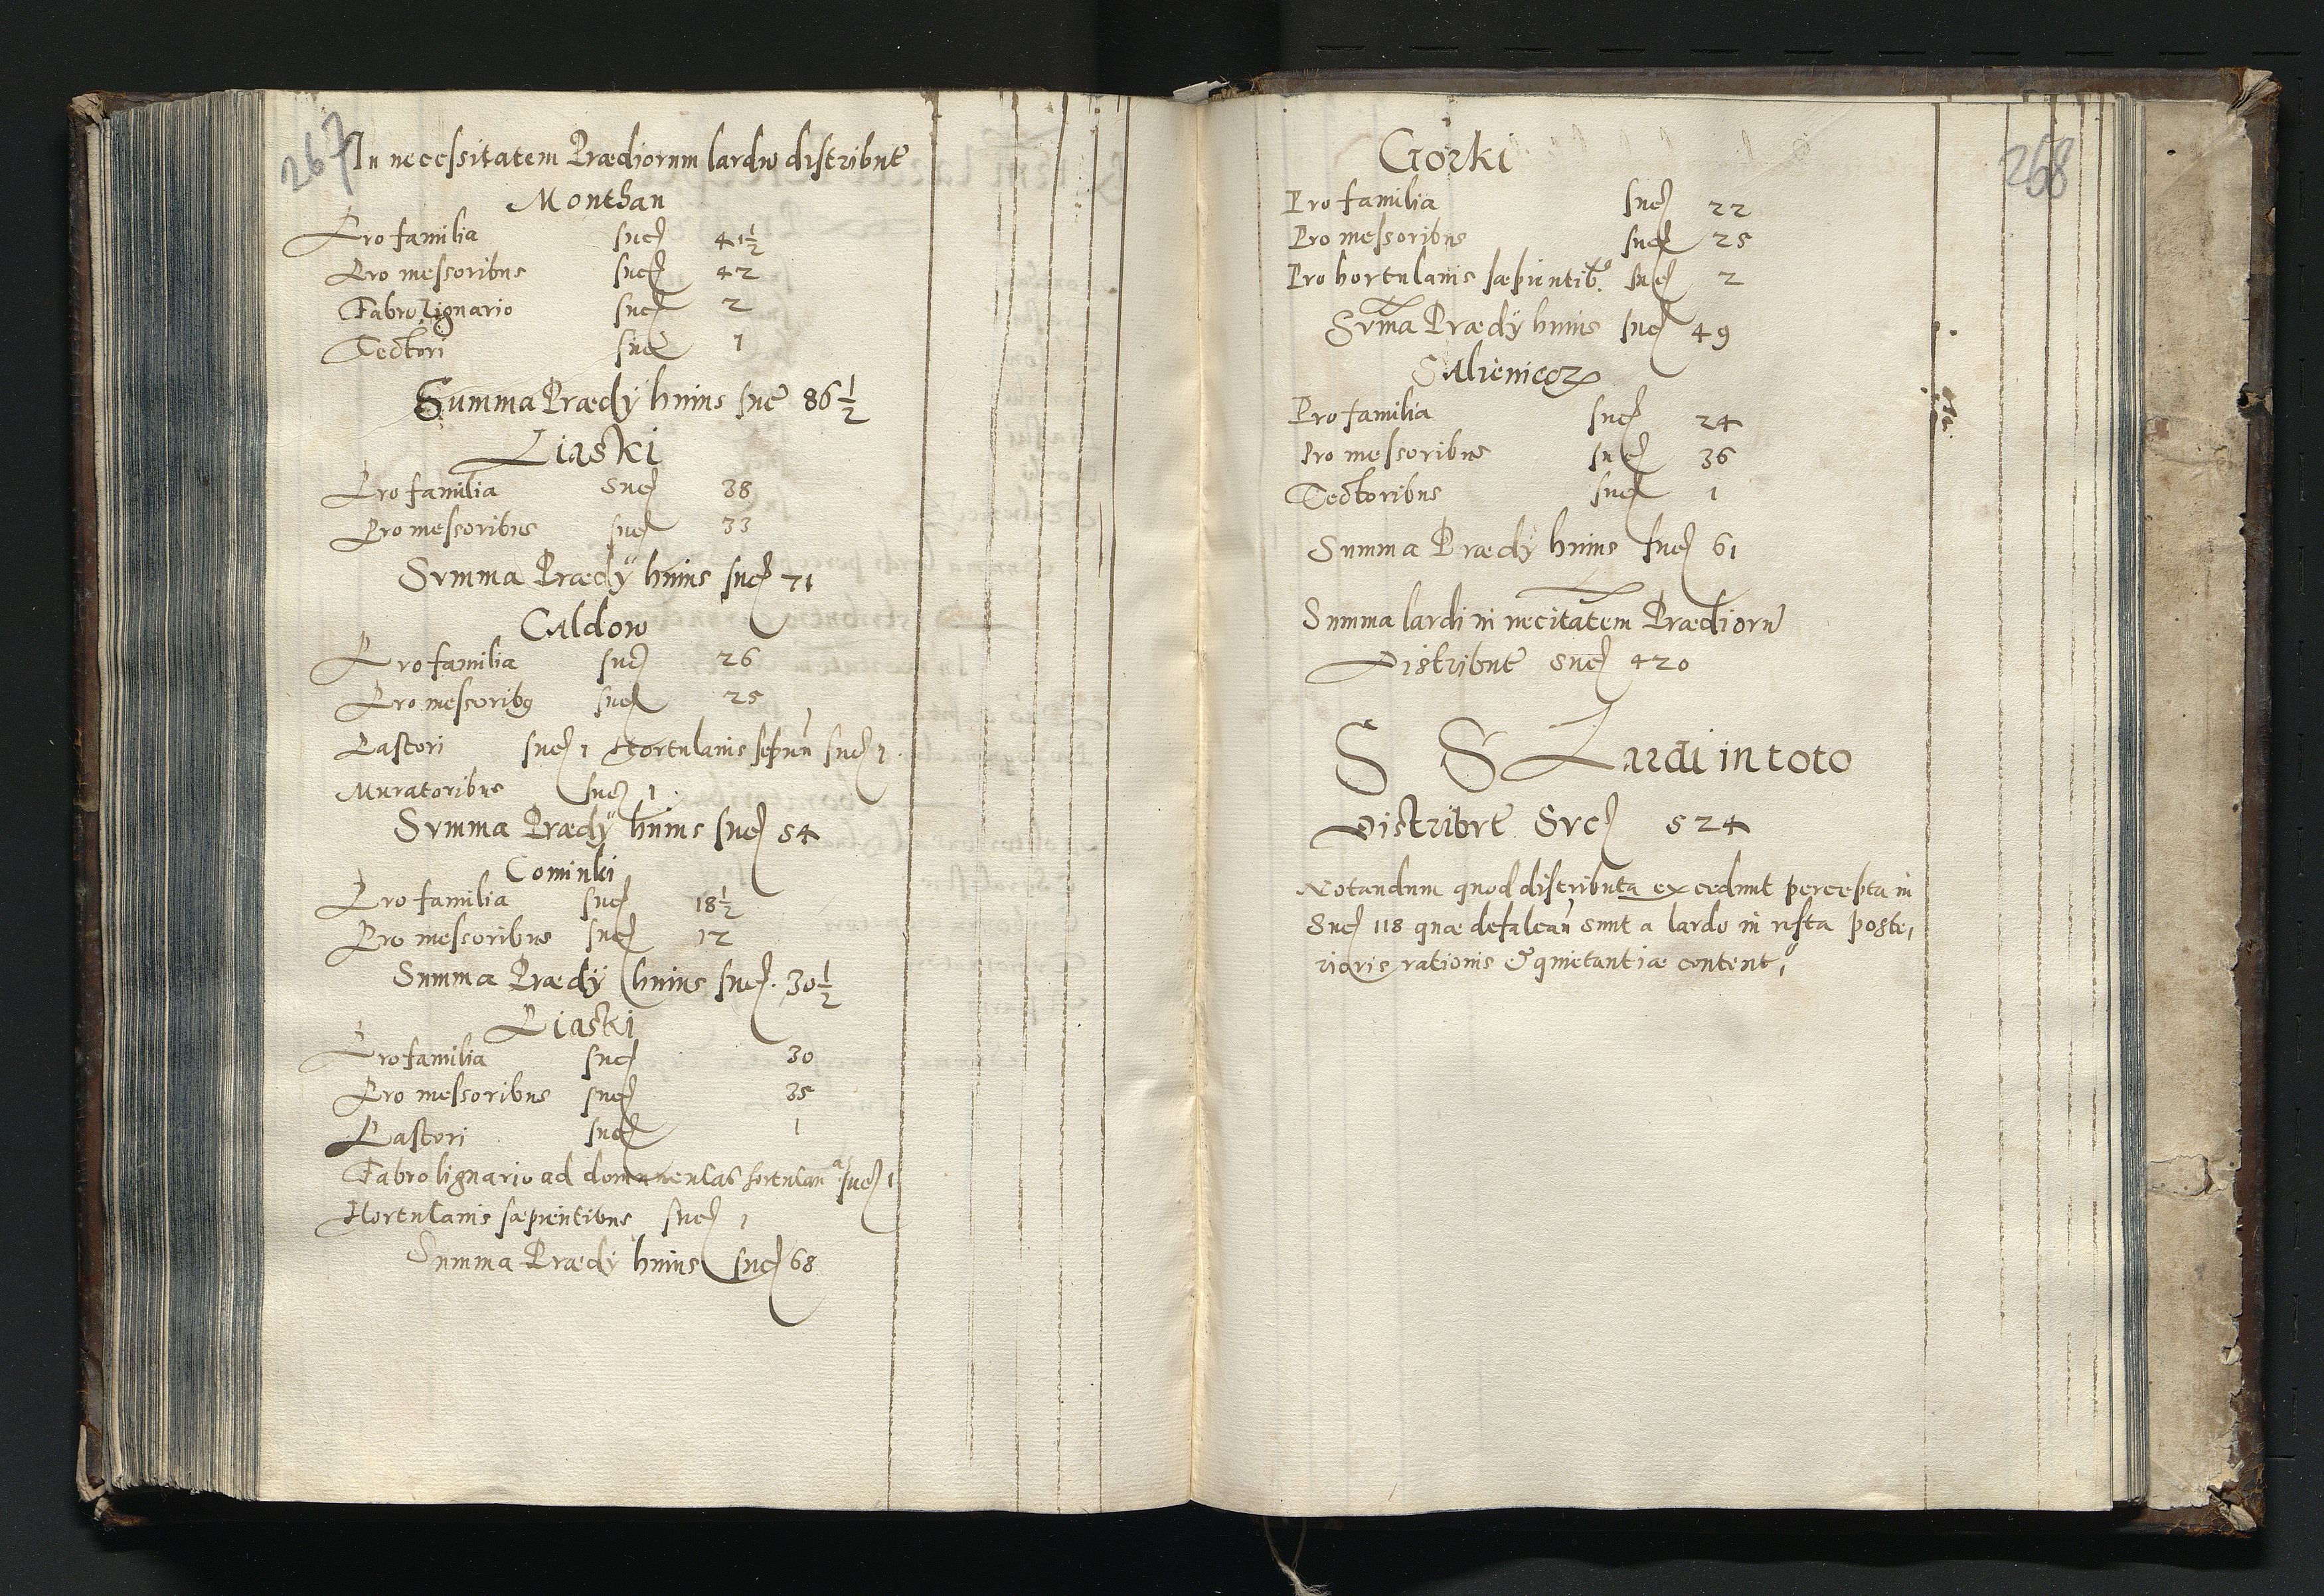 267
In necessitatem Prædiorum lardũ distribut͠
Monthau
Pro familia suc) 41½
Pro messoribus suc) 42
Fabro lignario suc) 2
Tectori suc) 1
Summa Prædÿ huius suc) 86½
Liaski
Pro familia Suc) 38
Pro messoribus suc) 33
Summa Prædÿ huius suc) 71
Caldow
Pro familia suc) 26
Pro messorib9 suc) 25
Pastori suc) 1 Hortulanis sepien) suc) 1
Muratoribus suc) 1
Summa Prædÿ huius suc) 54
Cominki
Pro familia suc) 18½
Pro messoribus suc) 12
Summa Prædÿ huius suc) 30½
Piaski
Pro familia suc) 30
Pro messoribus suc) 35
Pastori suc) 1
Fabro lignario ad hortulan suc) 1
Hortulanis sæpientibus suc) 1
Summa Prædÿ huius suc) 68
268
Gorki
Pro familia suc) 22
Pro messoribus suc) 25
Pro hortulanis sæpientib9 suc) 2
Sum̃a Prædÿ huius suc) 49
Pro familia suc) 24
Pro messoribus suc) 36
Tectoribus suc) 1
Summa Prædÿ huius suc) 61
Summa lardi in necitatem Prædiorũ
Distribut͠ suc) 420
S S Lardi in toto
Distribut͠ Suc) 524
Notandum quod distributa excedunt percepta in
Suc) 118 quæ defalcat) sunt a lardo in resta poste,
rioris rationis & quietantiæ content,